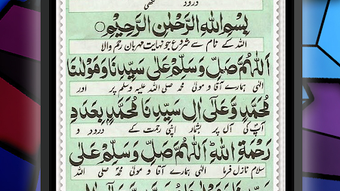 درود
بِسْمِ اللهِ الرَّحْمٰنِ الرَّحِيْمِ
اللہ کے نام سے شروع جو نہایت مہربان رحم والا
اَللّٰهُمَّ صَلِّ وَسَلِّمْ عَلٰى سَيِّدِنَا وَمَوْلٰنَا
الٰہی ہمارے آقا و مولیٰ محمد صلی اللہ علیہ وسلم پر اور
مُحَمَّدٍ وَّعَلٰى اٰلِ سَيِّدِنَا مُحَمَّدٍ بِعَدَدِ
آپ کی آل پر بشمار اپنی رحمت کے درود و
رَحْمَةِ اللهِ اَللّٰهُمَّ صَلِّ وَسَلِّمْ عَلٰى
سلام نازل فرما الٰہی ہمارے آقا و مولیٰ محمد صلی اللہ